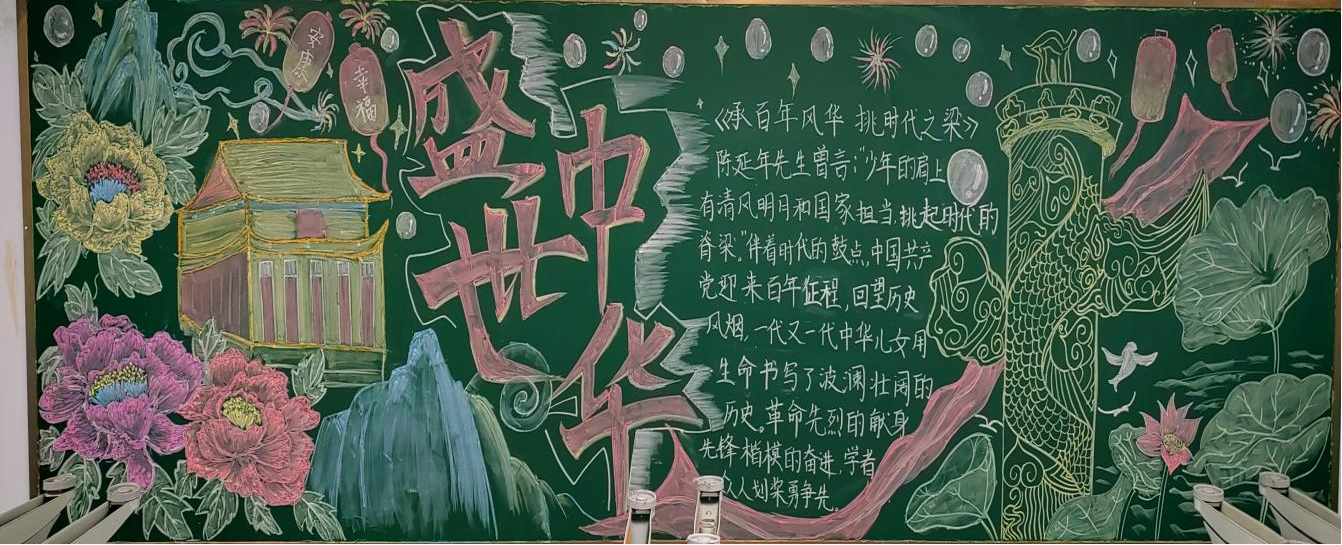 安康
幸福
盛世
中华
《承百年风华 挑时代之梁》
陈延年先生曾言:“少年的肩上
有清风明月和国家担当,挑起时代的
脊梁。”伴着时代的鼓点,中国共产
党迎来百年征程,回望历史
风烟,一代又一代中华儿女用
生命书写了波澜壮阔的
历史。革命先烈的献身
先锋楷模的奋进,学者
众人划桨勇争先。